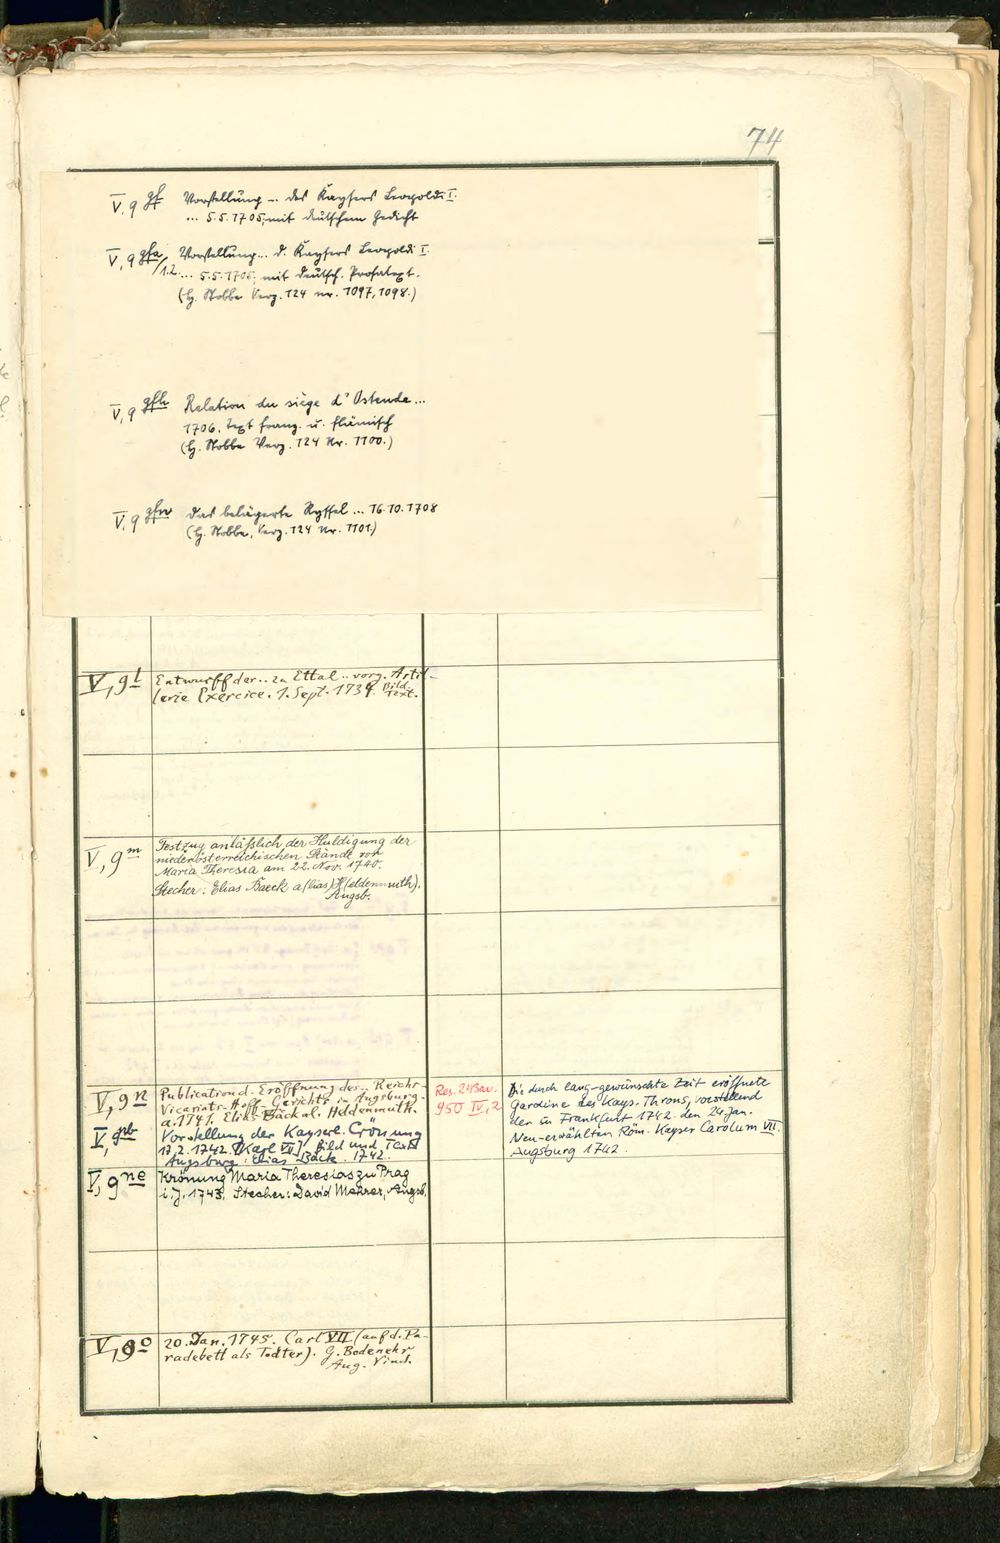 74
V,9 gf Vorstellung ... des Kaysers Leopoldi I.
... 5.5.1705; mit deutschem Gedicht
V,9 gfa/1.2 Vorstellung... d. Kaysers Leopoldi I
... 5.5.1705; mit deutsch. Prosatext.
(H. Stobbe Verz. 124 nr. 1097, 1098.)
V,9 gfh Relation du siège d'Ostende...
1706. Text franz. u. flämisch
(H. Stobbe Verz. 124 Nr. 1100.)
V,9 Das belägerte Ryssel ... 16.10.1708
(H. Stobbe, Verz. 124 Nr. 1101)
V,9 l Entwurff der .. zu Ettal .. vorg. Artil-
lerie Exercice. 1. Sept. 1739. Bild
Text.
V,9 m Festzug anläßlich der Huldigung der
niederösterreichischen Stände vor
Maria Theresia am 22. Nov. 1740.
Stecher: Elias Baeck a(lias) H(eldenmuth).
Augsb.
V,9 n Publication d. Eröffnung der .. Reichs-
Vicariats-Hoff Gerichts in Augsburg.
a. 1741. Elias Bäck al. Heldenmuth.
V,9 nb Vorstellung der Kayserl. Crönung
12.2.1742 [Karl VII] Bild und Text
Augsburg: Elias Bäck. 1742.
Res. 2° Bav.
950 IV,2
Die durch lang-gewünschte Zeit eröffnete
Gardine des Kays. Throns, vorstellend
den in Frankfurt 1742. den 24. Jan.
Neu-erwählten Röm. Kayser Carolum VII.
Augsburg 1742.
V,9 ne Krönung Maria Theresias zu Prag
i. J. 1743. Stecher: David Mehrer, Augsb.
V,9 o 20. Jan. 1745. Carl VII (auf d. Pa-
radebett als Todter). G. Bodenehr
Aug. Vind.